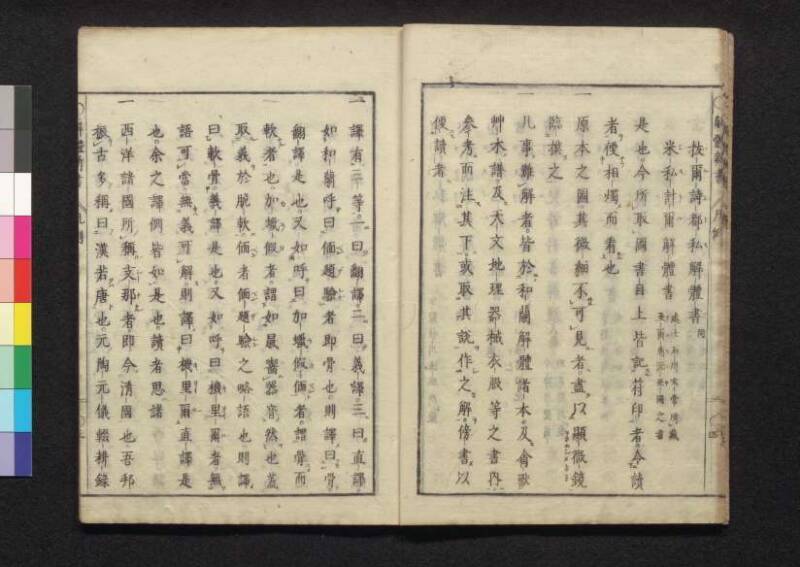 抜爾詩郡私解體書 同
米私計爾解體書
是也今所取圖書自上皆記符印者令讀
者便相燭而看也
原本之圖其微細不可見者盡以顯微鏡
臨摸之
凡事難解者皆於和蘭解體諸本及禽獸
艸木譜及天文地理器械衣服等之書內
參考而注其下或取其說作之解傍書以
便讀者
一譯有三等一曰翻譯二曰義譯三曰直譯
如和蘭呼曰偭題驗者即骨也則譯曰骨
翻譯是也又如呼曰加蠟假偭者謂骨而
軟者也加蠟假者謂如鼠齧器音然也蓋
取義於脆軟偭者偭題驗之略語也則譯
曰軟骨義譯是也又如呼曰機里爾者無
語可當無義可解則譯曰機里爾直譯是
也余之譯例皆如是也讀者思諸
一西洋諸國所稱支那者即今清國也吾邦
振古多稱曰漢若唐也元陶元儀輟耕錄